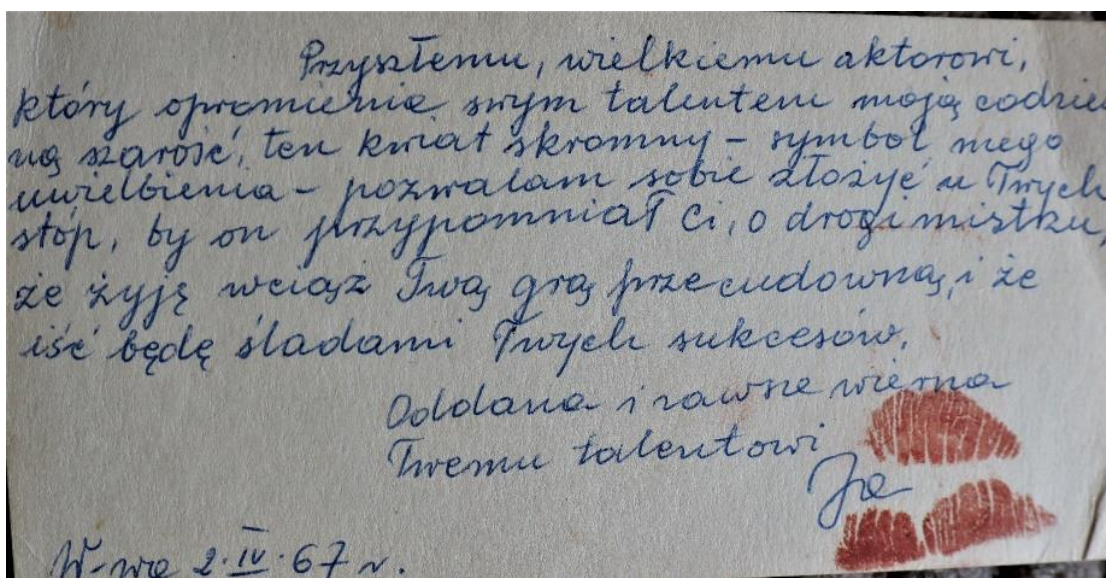 Przyszłemu, wielkiemu aktorowi,
który opromienia swym talentem moją codzien
ną szarość, ten kwiat skromny – symbol mego
uwielbienia – pozwalam sobie złożyć u Twych
stóp, by on przypomniał Ci, o drogi mistrzu,
że żyję wciąż Twą grą przecudowną, i że
iść będę śladami Twych sukcesów.
Oddana i zawsze wierna
Twemu talentowi
Ja
W-wa 2.IV.67 r.